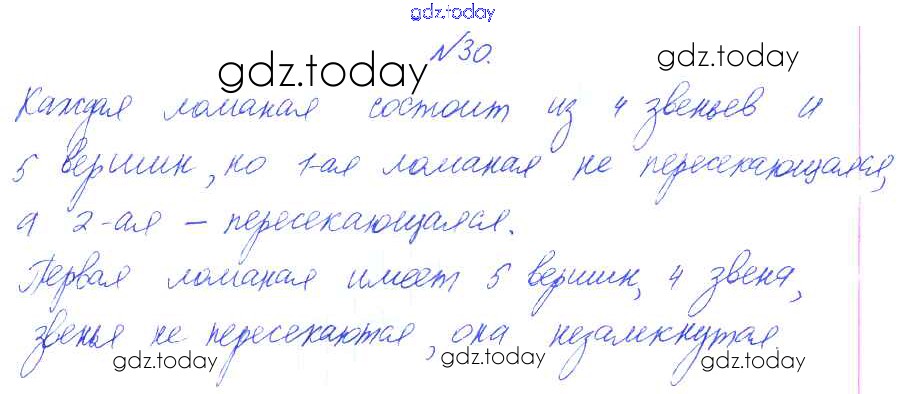 gdz.today
№30.
gdz.today gdz.today
Каждая ломаная состоит из 4 звеньев и
5 вершин, но 1-ая ломаная не пересекающаяся,
а 2-ая – пересекающаяся.
Первая ломаная имеет 5 вершин, 4 звена,
звенья не пересекаются, она незамкнутая.
gdz.today gdz.today gdz.today